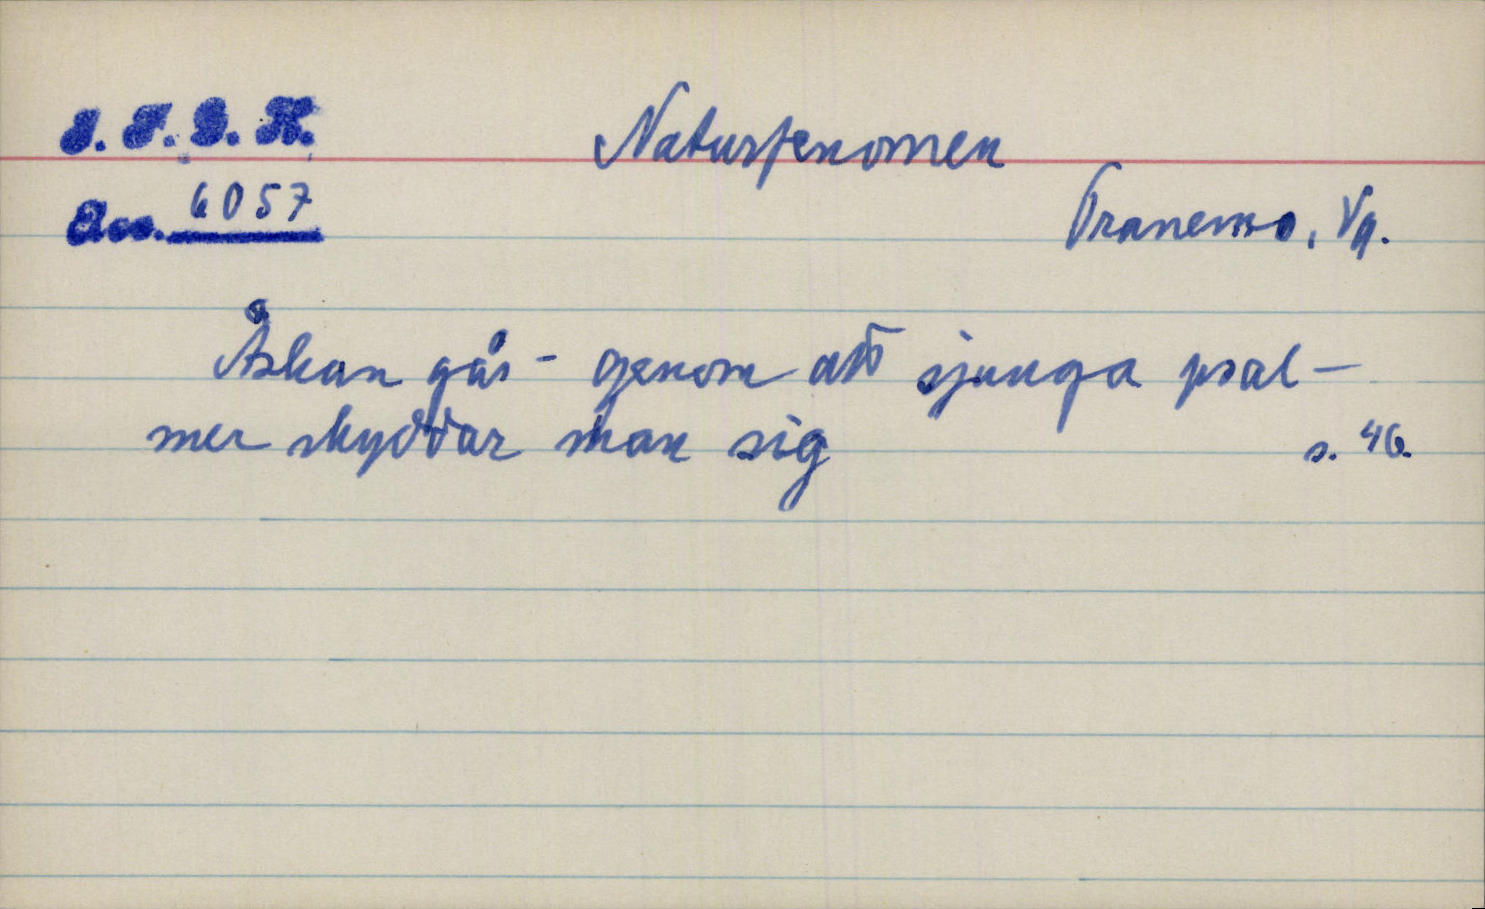 I. F. G. H.
Naturfenomen
Acc. 6057
Tranemo, Vg.
Åskan går - genom att sjunga psal-
mer skyddar man sig
s. 46.